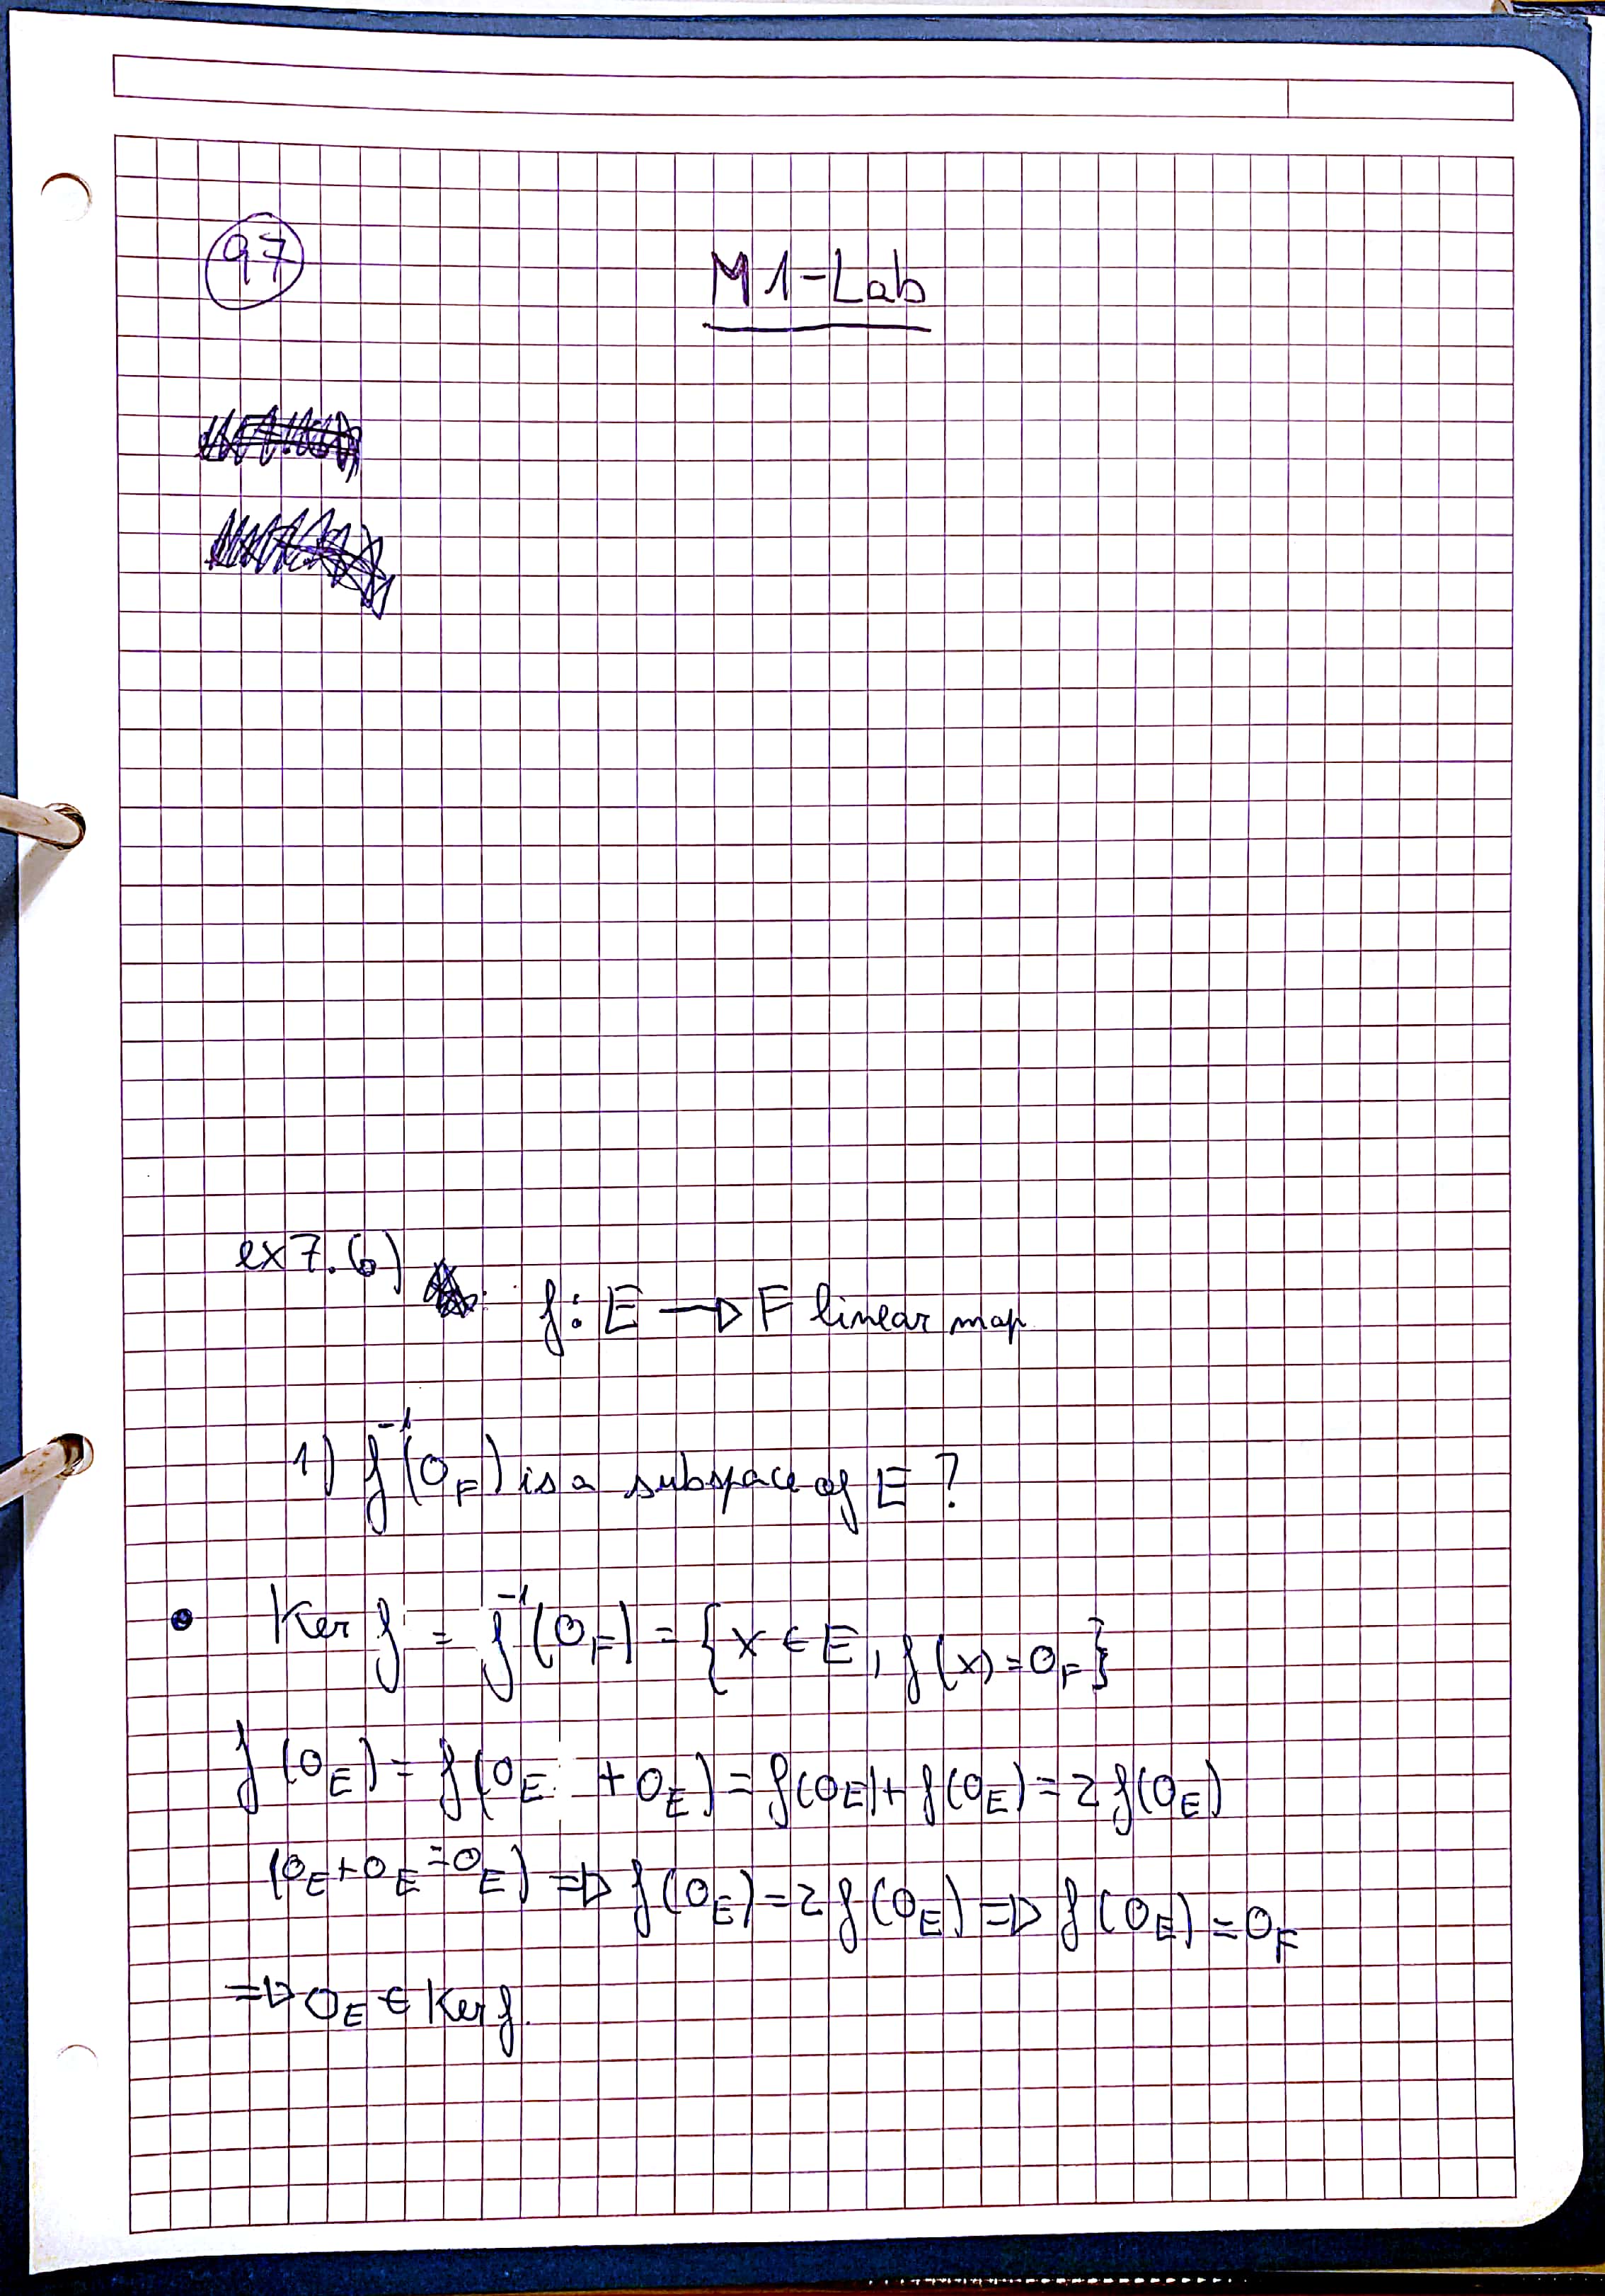 97
M1-Lab
ex7.6)
f: E → F linear map
1) f⁻¹(0_F) is a subspace of E ?
• Ker f = f⁻¹(0_F) = { x ∈ E, f(x) = 0_F }
f(0_E) = f(0_E + 0_E) = f(0_E) + f(0_E) = 2 f(0_E)
(0_E + 0_E = 0_E) ⇒ f(0_E) = 2 f(0_E) ⇒ f(0_E) = 0_F
⇒ 0_E ∈ Ker f.